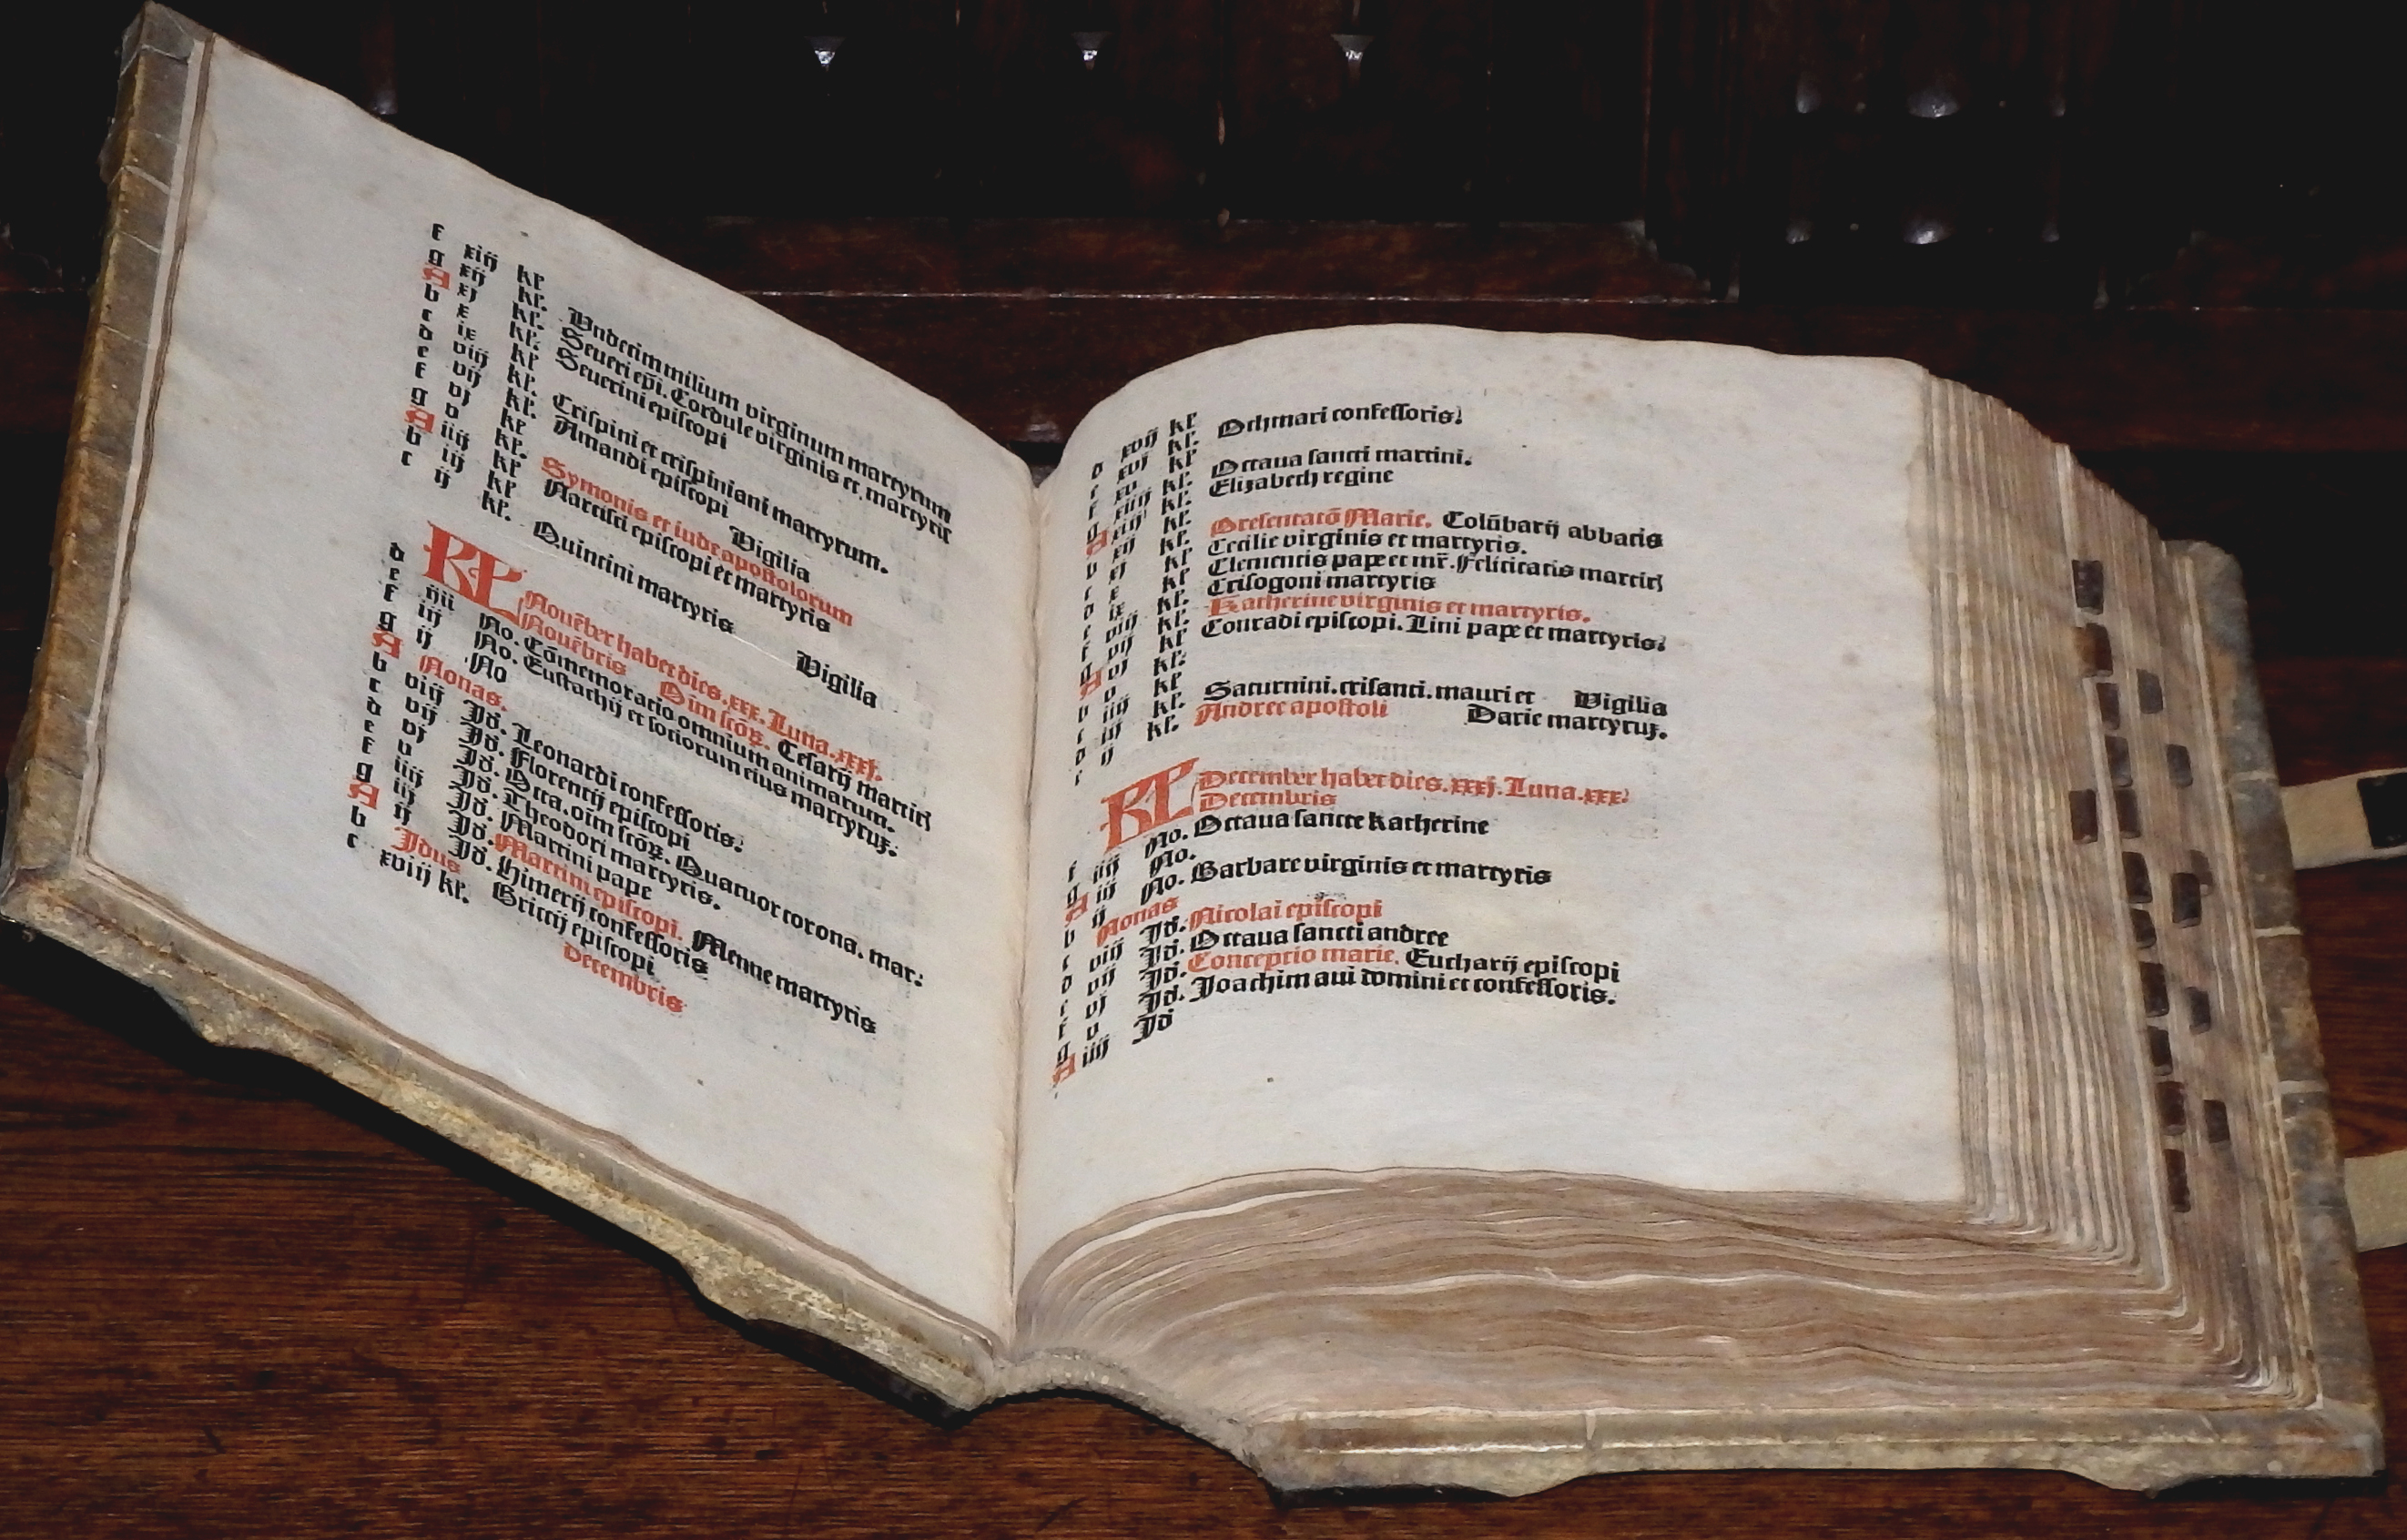 f xiij kl'
g xij kl'.
A xj kl'. Undecim milium virginum martyrum
b x kl'. Seueri ep̄i. Cordule virginis et martyris
c ix kl' Seuerini episcopi
d viij kl'.
e vij kl'. Crispini et crispiniani martyrum.
f vj kl'. Amandi episcopi
g v kl' Vigilia
A iiij kl'. Symonis et iude apostolorum
b iij kl' Narcisci episcopi et martyris
c ij kl'
kl'. Quintini martyris Vigilia
KL Nouēber habet dies. xxx. Luna. xxxj.
d Nouēbris Oīm scōꝝ. Cesarij martiris
e iiij No. Cōmemoracio omnium animarum.
f iij No. Eustachij et sociorum eius martyruꝫ.
g ij No
A Nonas.
b viij Jd. Leonardi confessoris.
c vij Jd. Florencij episcopi
d vj Jd. Octa. oīm scōꝝ. Quatuor corona. mar:
e v Jd. Theodori martyris.
f iiij Jd. Martini pape
g iij Jd. Martini episcopi. Menne martyris
A ij Jd. Himerij confessoris
b Jdus Briccij episcopi
c xviij kl'. Decembris
d xvij kl' Othmari confessoris.
e xvj kl'.
f xv kl' Octaua sancti martini.
g xiiij kl'. Elizabeth regine
A xiij kl'.
b xij kl'. Presentatō Marie. Colūbarij abbatis
c xj kl'. Cecilie virginis et martyris.
d x kl' Clementis pape et mr̄. Felicitatis martiris
e ix kl'. Crisogoni martyris
f viij kl'. Katherine virginis et martyris.
g vij kl' Conradi episcopi. Lini pape et martyris.
A vj kl'.
b v kl'
c iiij kl'. Saturnini. crisanti. mauri et Vigilia
d iij kl'. Darie martyruꝫ.
e ij Andree apostoli
KL December habet dies. xxxj. Luna. xxx.
Decembris
f iiij No. Octaua sancte Katherine
g iij No.
A ij No. Barbare virginis et martyris
b Nonas
c viij Jd. Nicolai episcopi
d vij Jd. Octaua sancti andree
e vj Jd. Conceptio marie. Eucharij episcopi
f v Jd. Joachim aui domini et confessoris.
g iiij Jd
A